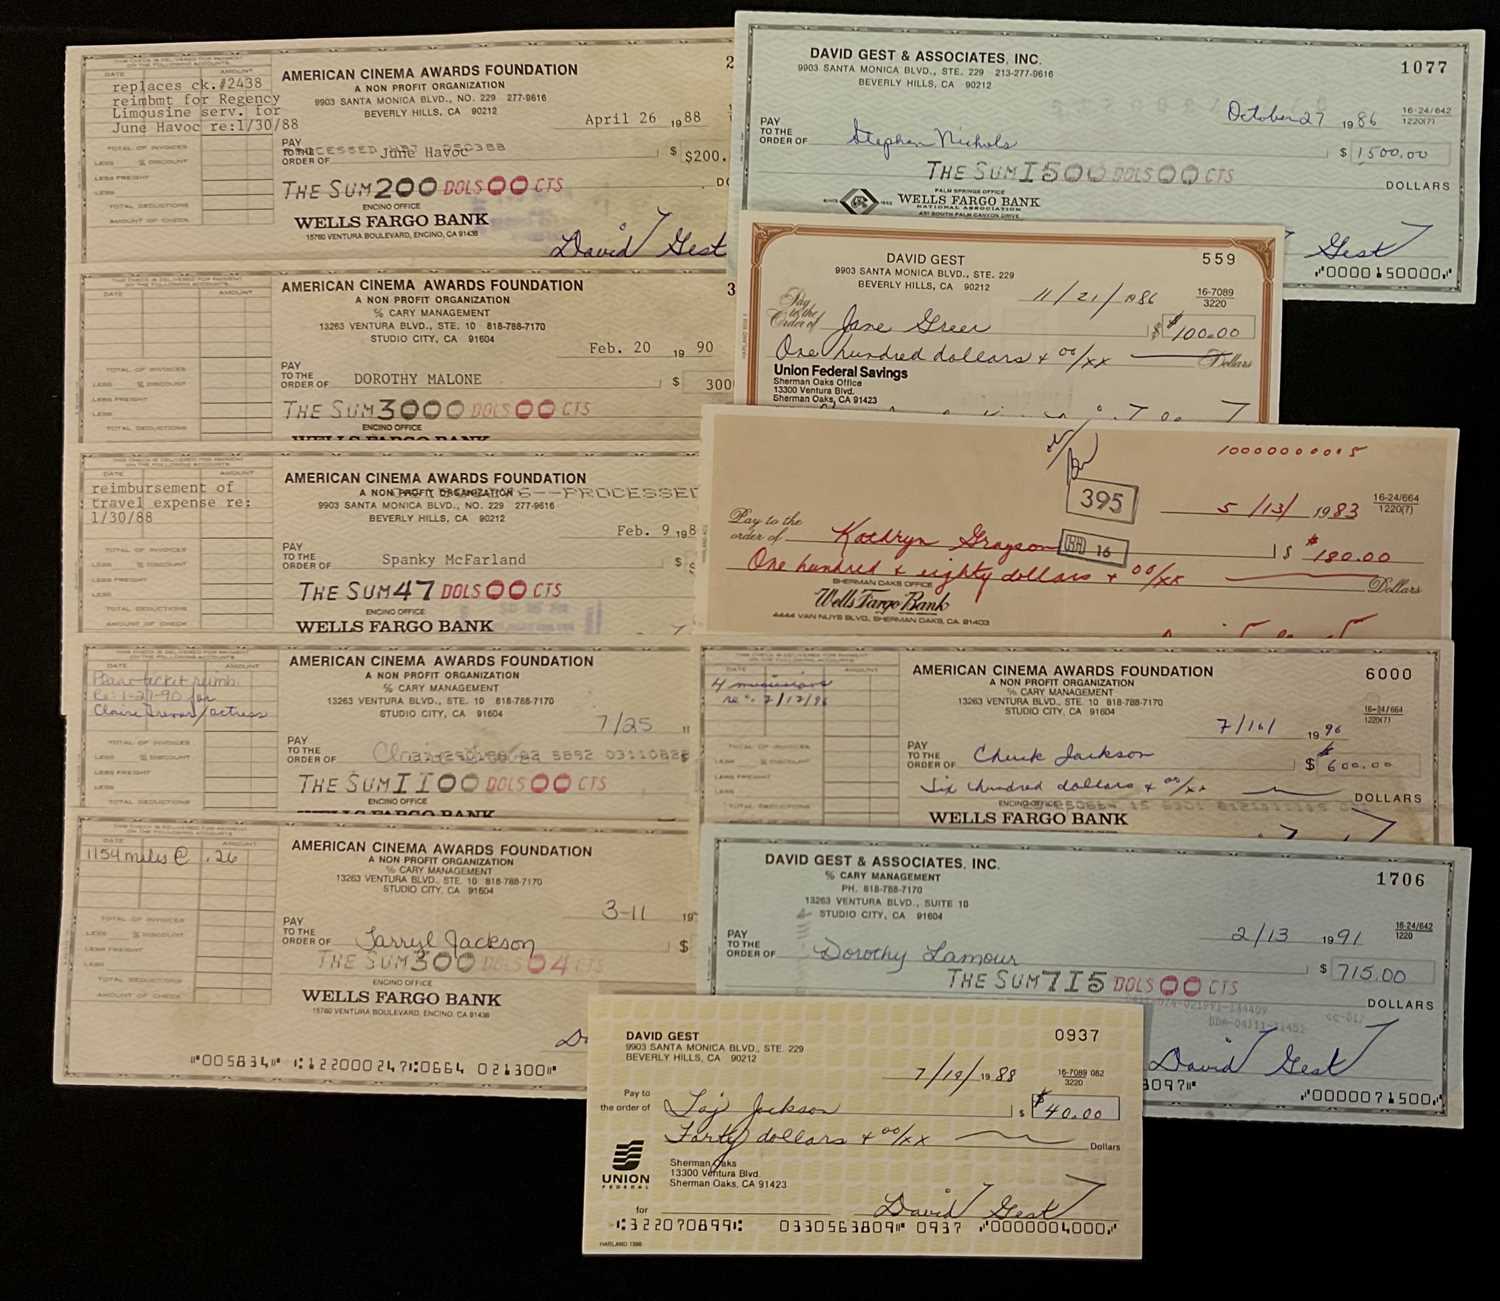 replaces ck.#2438
reimbmt for Regency
Limousine serv. for
June Havoc re:1/30/88
AMERICAN CINEMA AWARDS FOUNDATION
A NON PROFIT ORGANIZATION
9903 SANTA MONICA BLVD., NO. 229 277-9616
BEVERLY HILLS, CA 90212
April 26 1988
PAY
TO THE
ORDER OF June Havoc $ $200.
THE SUM 200 DOLS 00 CTS
ENCINO OFFICE
WELLS FARGO BANK
15760 VENTURA BOULEVARD, ENCINO, CA 91436
David Gest
AMERICAN CINEMA AWARDS FOUNDATION
A NON PROFIT ORGANIZATION
℅ CARY MANAGEMENT
13263 VENTURA BLVD., STE. 10 818-788-7170
STUDIO CITY, CA 91604
Feb. 20 19 90
PAY
TO THE
ORDER OF DOROTHY MALONE $ 300
THE SUM 3000 DOLS 00 CTS
ENCINO OFFICE
WELLS FARGO BANK
reimbursement of
travel expense re:
1/30/88
AMERICAN CINEMA AWARDS FOUNDATION
A NON PROFIT ORGANIZATION
9903 SANTA MONICA BLVD., NO. 229 277-9616
BEVERLY HILLS, CA 90212
Feb. 9 198
PAY
TO THE
ORDER OF Spanky McFarland $
THE SUM 47 DOLS 00 CTS
ENCINO OFFICE
WELLS FARGO BANK
Plane ticket reimb.
Re: 1-27-90 for
Claire Trevor/actress
AMERICAN CINEMA AWARDS FOUNDATION
A NON PROFIT ORGANIZATION
℅ CARY MANAGEMENT
13263 VENTURA BLVD., STE. 10 818-788-7170
STUDIO CITY, CA 91604
7/25
PAY
TO THE
ORDER OF
THE SUM 1100 DOLS 00 CTS
ENCINO OFFICE
WELLS FARGO BANK
DATE AMOUNT
1154 miles @ .26
AMERICAN CINEMA AWARDS FOUNDATION
A NON PROFIT ORGANIZATION
℅ CARY MANAGEMENT
13263 VENTURA BLVD., STE. 10 818-788-7170
STUDIO CITY, CA 91604
3-11 19
PAY
TO THE
ORDER OF Tarryl Jackson $
THE SUM 300 DOLS 04 CTS
ENCINO OFFICE
WELLS FARGO BANK
15760 VENTURA BOULEVARD, ENCINO, CA 91436
⑈005834⑈ ⑆122000247⑆0664 021300⑈
DAVID GEST & ASSOCIATES, INC.
9903 SANTA MONICA BLVD., STE. 229 213-277-9616
BEVERLY HILLS, CA 90212
1077
October 27 1986
16-24/642
1220(7)
PAY
TO THE
ORDER OF Stephen Nichols $ 1500.00
THE SUM 1500 DOLS 00 CTS
DOLLARS
PALM SPRINGS OFFICE
WELLS FARGO BANK
NATIONAL ASSOCIATION
431 SOUTH PALM CANYON DRIVE
Gest
⑈0000150000⑈
DAVID GEST
9903 SANTA MONICA BLVD., STE. 229
BEVERLY HILLS, CA 90212
559
11/21/1986
16-7089
3220
Pay
to the
Order of Jane Greer $ 100.00
One hundred dollars + 00/xx Dollars
Union Federal Savings
Sherman Oaks Office
13300 Ventura Blvd.
Sherman Oaks, CA 91423
395
5/13/1983
16-24/664
1220(7)
Pay to the
order of Kathryn Grayson $ 180.00
16
One hundred & eighty dollars + 00/xx Dollars
SHERMAN OAKS OFFICE
Wells Fargo Bank
4444 VAN NUYS BLVD., SHERMAN OAKS, CA 91403
4 musicians
re: 7/17/96
AMERICAN CINEMA AWARDS FOUNDATION
A NON PROFIT ORGANIZATION
℅ CARY MANAGEMENT
13263 VENTURA BLVD., STE. 10 818-788-7170
STUDIO CITY, CA 91604
6000
7/16/ 1996
16-24/664
1220(7)
PAY
TO THE
ORDER OF Chuck Jackson $ 600.00
Six hundred dollars + 00/xx DOLLARS
WELLS FARGO BANK
DAVID GEST & ASSOCIATES, INC.
℅ CARY MANAGEMENT
PH. 818-788-7170
13263 VENTURA BLVD., SUITE 10
STUDIO CITY, CA 91604
1706
2/13 1991
16-24/642
1220
PAY
TO THE
ORDER OF Dorothy Lamour $ 715.00
THE SUM 715 DOLS 00 CTS
DOLLARS
David Gest
3097⑈ ⑈0000071500⑈
DAVID GEST
9903 SANTA MONICA BLVD., STE. 229
BEVERLY HILLS, CA 90212
0937
7/19/1988
16-7089 082
3220
Pay to
the order of Taj Jackson $ 40.00
Forty dollars + 00/xx Dollars
UNION
FEDERAL
Sherman Oaks
13300 Ventura Blvd.
Sherman Oaks, CA 91423
for David Gest
⑆322070899⑆ 0330563809⑈ 0937 ⑈0000004000⑈
HARLAND 1986